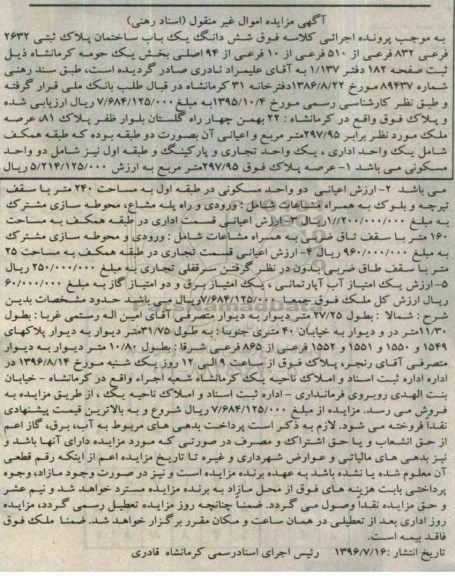 آگهی مزایده اموال غیر منقول (اسناد رهنی)
به موجب پرونده اجرائی کلاسه فوق شش دانگ یک باب ساختمان پلاک ثبتی ۲۶۳۲
فرعی ۸۳۲ فرعی از ۵۱۰ فرعی از ۱۰ فرعی از ۹۴ اصلی بخش یک حومه کرمانشاه ذیل
ثبت صفحه ۱۸۲ دفتر ۱/۱۳۷ به آقای علیمراد نادری صادر گردیده است، طبق سند رهنی
شماره ۸۹۴۳۷ مورخ ۱۳۸۶/۸/۲۲ دفترخانه ۳۱ کرمانشاه در قبال طلب بانک ملی قرار گرفته
و طبق نظر کارشناسی رسمی مورخ ۱۳۹۵/۱۰/۴ به مبلغ ۷/۶۸۴/۱۲۵/۰۰۰ ریال ارزیابی شده
و پلاک فوق واقع در کرمانشاه : ۲۲ بهمن چهار راه گلستان بلوار ظفر پلاک ۸۱ عرصه
ملک مورد نظر برابر ۲۹۷/۹۵ متر مربع و اعیانی آن بصورت دو طبقه بوده که طبقه همکف
شامل یک واحد اداری ، یک واحد تجاری و پارکینگ و طبقه اول نیز شامل دو واحد
مسکونی می باشد ۱- عرصه پلاک فوق ۲۹۷/۹۵ متر مربع به ارزش ۵/۲۱۴/۱۲۵/۰۰۰ ریال
می باشد ۲- ارزش اعیانی دو واحد مسکونی در طبقه اول به مساحت ۲۴۰ متر با سقف
تیرچه و بلوک به همراه مشاعات شامل : ورودی و راه پله مشاع، محوطه سازی مشترک
به مبلغ ۱/۲۰۰/۰۰۰/۰۰۰ ریال ۳- ارزش اعیانی قسمت اداری در طبقه همکف به مساحت
۱۶۰ متر با سقف تاق ضربی به همراه مشاعات شامل : ورودی و محوطه سازی مشترک
به مبلغ ۹۶۰/۰۰۰/۰۰۰ ریال ۴- ارزش اعیانی قسمت تجاری در طبقه همکف به مساحت ۲۵
متر با سقف طاق ضربی بدون در نظر گرفتن سرقفلی تجاری به مبلغ ۲۵۰/۰۰۰/۰۰۰ ریال
۵- ارزش یک امتیاز آب آپارتمانی ، یک امتیاز برق و دو امتیاز گاز به مبلغ ۶۰/۰۰۰/۰۰۰
ریال ارزش کل ملک فوق جمعا ۷/۶۸۴/۱۲۵/۰۰۰ ریال می باشد حدود مشخصات بدین
شرح : شمالا : بطول ۲۷/۲۵ متر دیوار به دیوار متصرفی آقای امین اله رستمی غربا : بطول
۱۱/۳۰ متر در و دیوار به خیابان ۴۰ متری جنوبا : به طول ۳۱/۷۵ متر دیوار به دیوار پلاکهای
۱۵۴۹ و ۱۵۵۰ و ۱۵۵۱ و ۱۵۵۲ فرعی از ۸۶۵ فرعی شرقا : بطول ۱۰/۸۰ متر دیوار به دیوار
متصرفی آقای رنجبر، پلاک فوق از ساعت ۹ الی ۱۲ روز یک شنبه مورخ ۱۳۹۶/۸/۱۴ در
اداره اداره ثبت اسناد و املاک ناحیه یک کرمانشاه شعبه اجراء واقع در کرمانشاه - خیابان
بنت الهدی روبروی فرمانداری - اداره ثبت اسناد و املاک ناحیه یک ، از طریق مزایده به
فروش می رسد. مزایده از مبلغ ۷/۶۸۴/۱۲۵/۰۰۰ ریال شروع و به بالاترین قیمت پیشنهادی
نقدا فروخته می شود. لازم به ذکر است پرداخت بدهی های مربوط به آب، برق، گاز اعم
از حق انشعاب و یا حق اشتراک و مصرف در صورتی که مورد مزایده دارای آنها باشد و
نیز بدهی های مالیاتی و عوارض شهرداری و غیره تا تاریخ مزایده اعم از اینکه رقم قطعی
آن معلوم شده یا نشده باشد به عهده برنده مزایده است و نیز در صورت وجود مازاد، وجوه
پرداختی بابت هزینه های فوق از محل مازاد به برنده مزایده مسترد خواهد شد و نیم عشر
و حق مزایده نقدا وصول می گردد. ضمنا چنانچه روز مزایده تعطیل رسمی گردد، مزایده
روز اداری بعد از تعطیلی در همان ساعت و مکان مقرر برگزار خواهد شد. ضمنا ملک فوق
فاقد بیمه است.
تاریخ انتشار :۱۳۹۶/۷/۱۶ رئیس اجرای اسنادرسمی کرمانشاه قادری